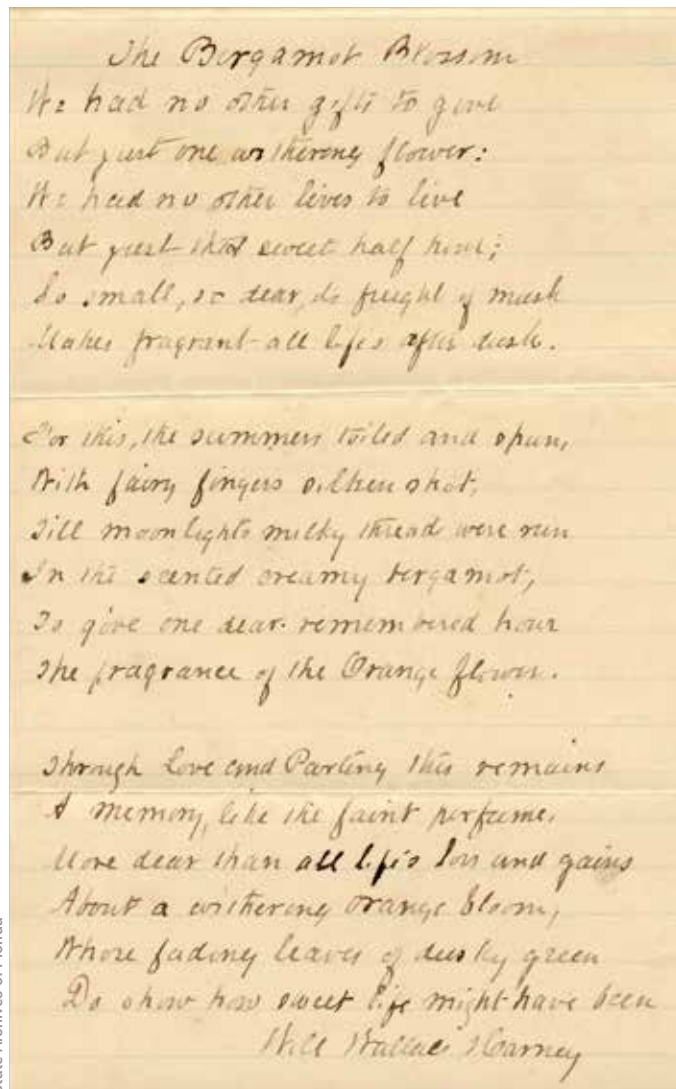 The Bergamot Blossom
We had no other gifts to give
But just one withering flower:
We had no other lives to live
But just that sweet half hour;
So small, so dear, its freight of musk
Makes fragrant all life's after dusk.
For this, the summers toiled and spun,
With fairy fingers silken shot,
Till moonlights milky thread were run
In the scented creamy bergamot,
To give one dear remembered hour
The fragrance of the Orange flower.
Through Love and Parting this remains
A memory, like the faint perfume,
More dear than all life's loss and gains
About a withering orange bloom,
Whose fading leaves of dusky green
Do show how sweet life might have been
Will Wallace Harney
State Archives of Florida